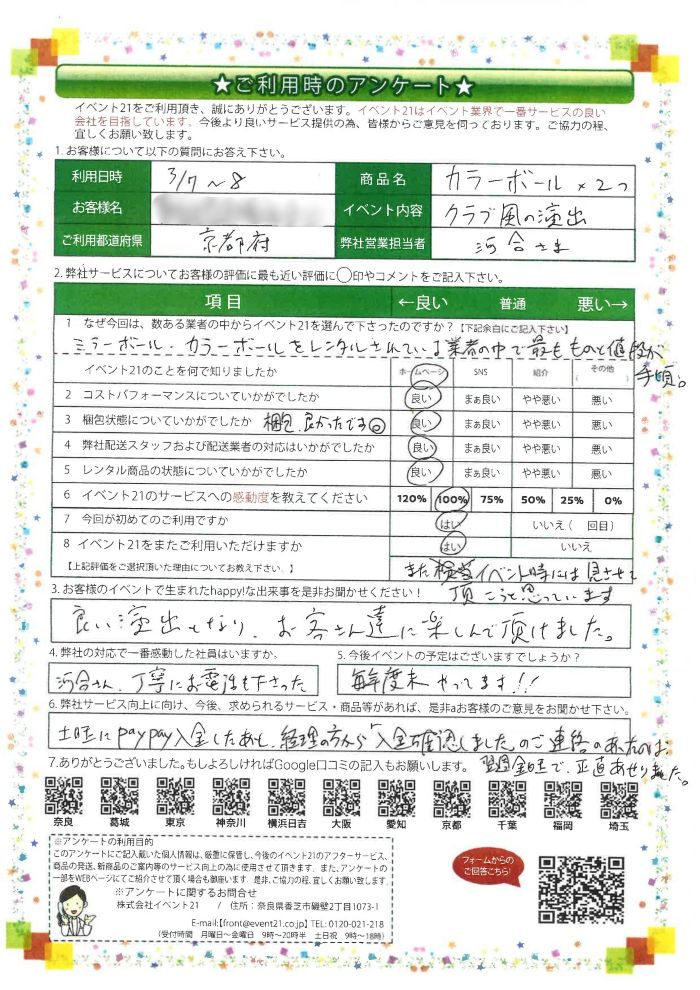 ★ご利用時のアンケート★
イベント21をご利用頂き、誠にありがとうございます。イベント21はイベント業界で一番サービスの良い
会社を目指しています。今後より良いサービス提供の為、皆様からご意見を伺っております。ご協力の程、
宜しくお願い致します。
1. お客様について以下の質問にお答え下さい。
利用日時 3/7～8 商品名 カラーボール×2つ
お客様名 イベント内容 クラブ風の演出
ご利用都道府県 京都府 弊社営業担当者 河合さま
2. 弊社サービスについてお客様の評価に最も近い評価に◯印やコメントをご記入下さい。
項目 ←良い 普通 悪い→
1 なぜ今回は、数ある業者の中からイベント21を選んで下さったのですか？【下記余白にご記入下さい】
ミラーボール・カラーボールをレンタルされている業者の中で最もものと値段が
手頃。
イベント21のことを何で知りましたか ホームページ SNS 紹介 その他( )
2 コストパフォーマンスについていかがでしたか 良い まぁ良い やや悪い 悪い
3 梱包状態についていかがでしたか 梱包、良かったです。 良い まぁ良い やや悪い 悪い
4 弊社配送スタッフおよび配送業者の対応はいかがでしたか 良い まぁ良い やや悪い 悪い
5 レンタル商品の状態についていかがでしたか 良い まぁ良い やや悪い 悪い
6 イベント21のサービスへの感動度を教えてください 120% 100% 75% 50% 25% 0%
7 今回が初めてのご利用ですか はい いいえ( 回目)
8 イベント21をまたご利用いただけますか はい いいえ
【上記評価をご選択頂いた理由についてお教え下さい。】 また イベント時には見させて
頂こうと思っています
3. お客様のイベントで生まれたhappy!な出来事を是非お聞かせください！
良い演出となり、お客さん達に楽しんで頂けました。
4. 弊社の対応で一番感動した社員はいますか。 5. 今後イベントの予定はございますでしょうか？
河合さん、丁寧にお電話も下さった 毎年度末やってます!!
6. 弊社サービス向上に向け、今後、求められるサービス・商品等があれば、是非aお客様のご意見をお聞かせ下さい。
土曜にpaypay入金したあと、経理の方から「入金確認しました」のご連絡のあったのは、
翌週金曜で、正直あせりました。
7.ありがとうございました。もしよろしければGoogle口コミの記入もお願いします。
奈良 葛城 東京 神奈川 横浜日吉 大阪 愛知 京都 千葉 福岡 埼玉
※アンケートの利用目的
このアンケートにご記入戴いた個人情報は、厳重に保管し、今後のイベント21のアフターサービス、
商品の発送、新商品のご案内等のサービス向上の為に使用させて頂きます。また、アンケートの
一部をWEBページにてご紹介させて頂く場合も御座います。是非、ご協力の程、宜しくお願い致します。
※アンケートに関するお問合せ
株式会社イベント21 / 住所：奈良県香芝市磯壁2丁目1073-1
E-mail:【front@event21.co.jp】 TEL: 0120-021-218
(受付時間 月曜日～金曜日 9時～20時半 土日祝 9時～18時)
フォームからの
ご回答こちら!